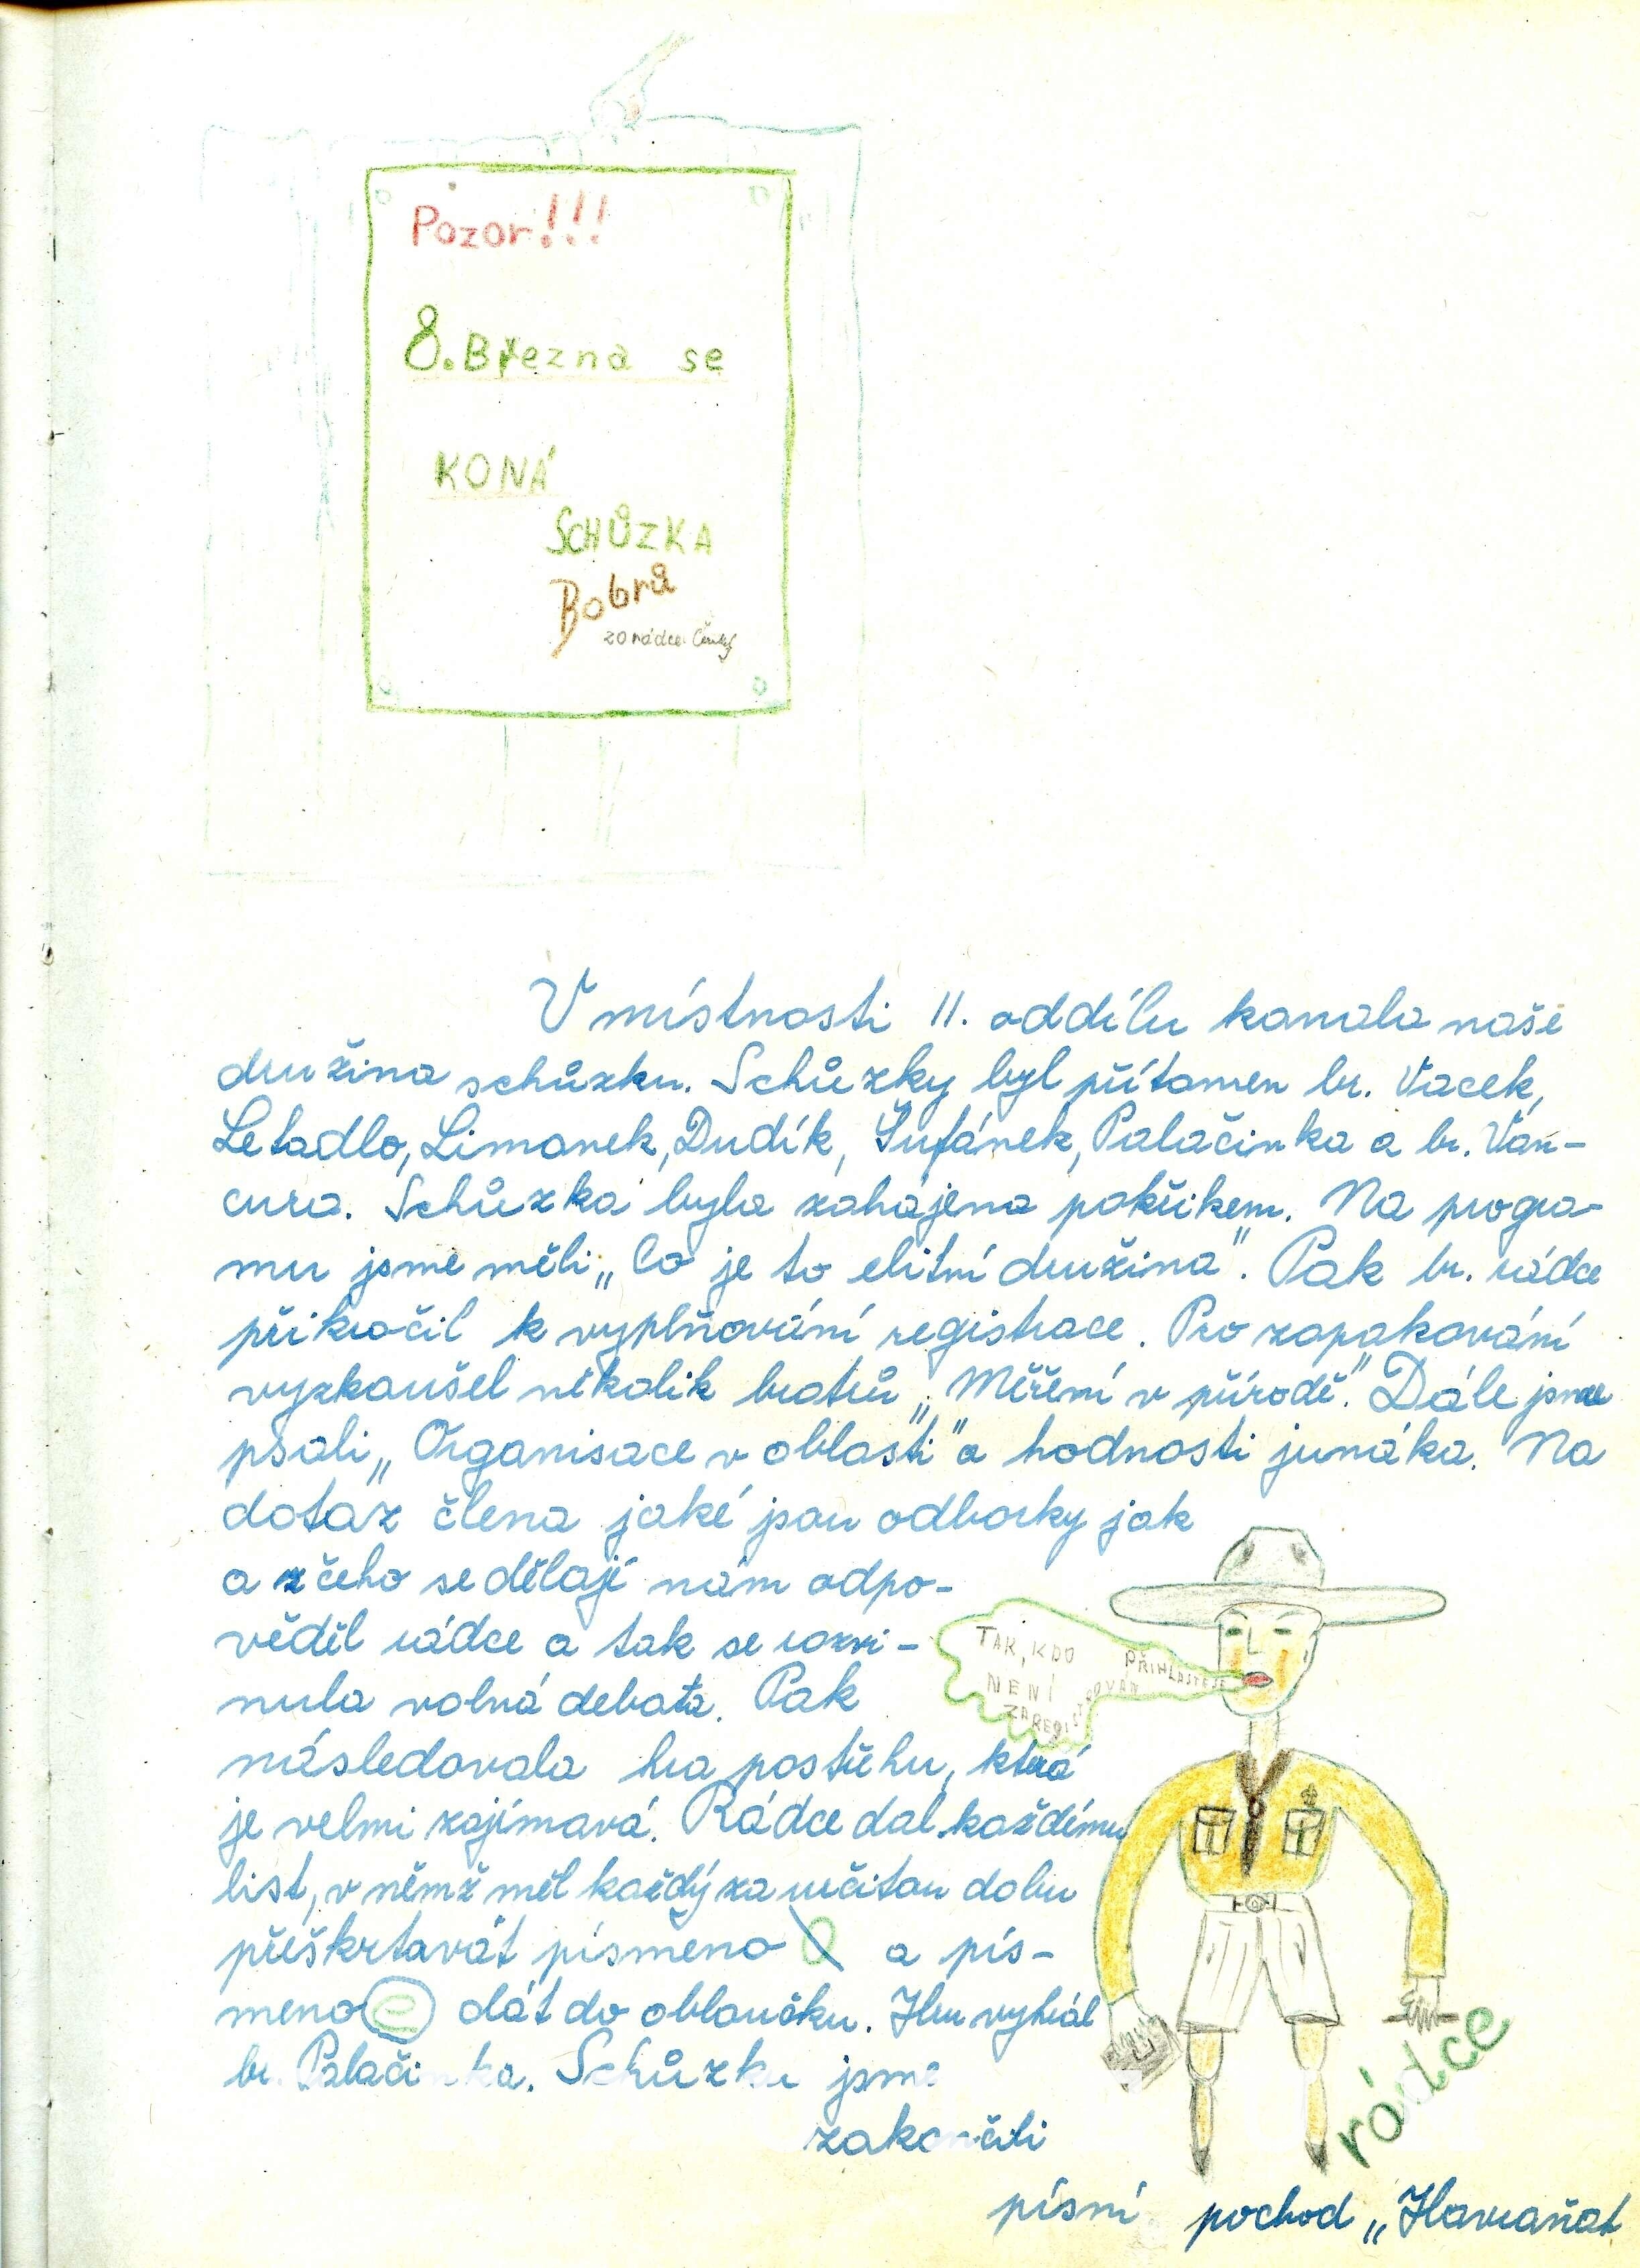 Pozor!!!
8. Března se
KONÁ
SCHŮZKA
Bobrů
rádce
V místnosti II. oddílu konala naše
družina schůzku. Schůzky byl přítomen br. Vacek,
Letadlo, Limonek, Dudík, Šufánek, Palačinka a br. Van-
cura. Schůzka byla zahájena pokřikem. Na progra-
mu jsme měli „Co je to elitní družina". Pak br. rádce
přikročil k vyplňování registrace. Pro zopakování
vyzkoušel několik bratrů „Měření v přírodě". Dále jsme
psali „Organisace v oblasti" a hodnosti junáka. Na
dotaz člena jaké jsou odborky jak
a z čeho se dělají nám odpo-
věděl rádce a tak se rozvi-
nula volná debata. Pak
následovala hra postřehu, která
je velmi zajímavá. Rádce dal každému
list, v němž měl každý za určitou dobu
přeškrtavát písmeno o a pís-
meno e dát do obloučku. Hru vyhrál
br. Palačinka. Schůzku jsme
zakončili
písní pochod „Havraňat
TAK, KDO
NENÍ
ZAREGISTROVÁN
PŘIHLASTE SE
rádce